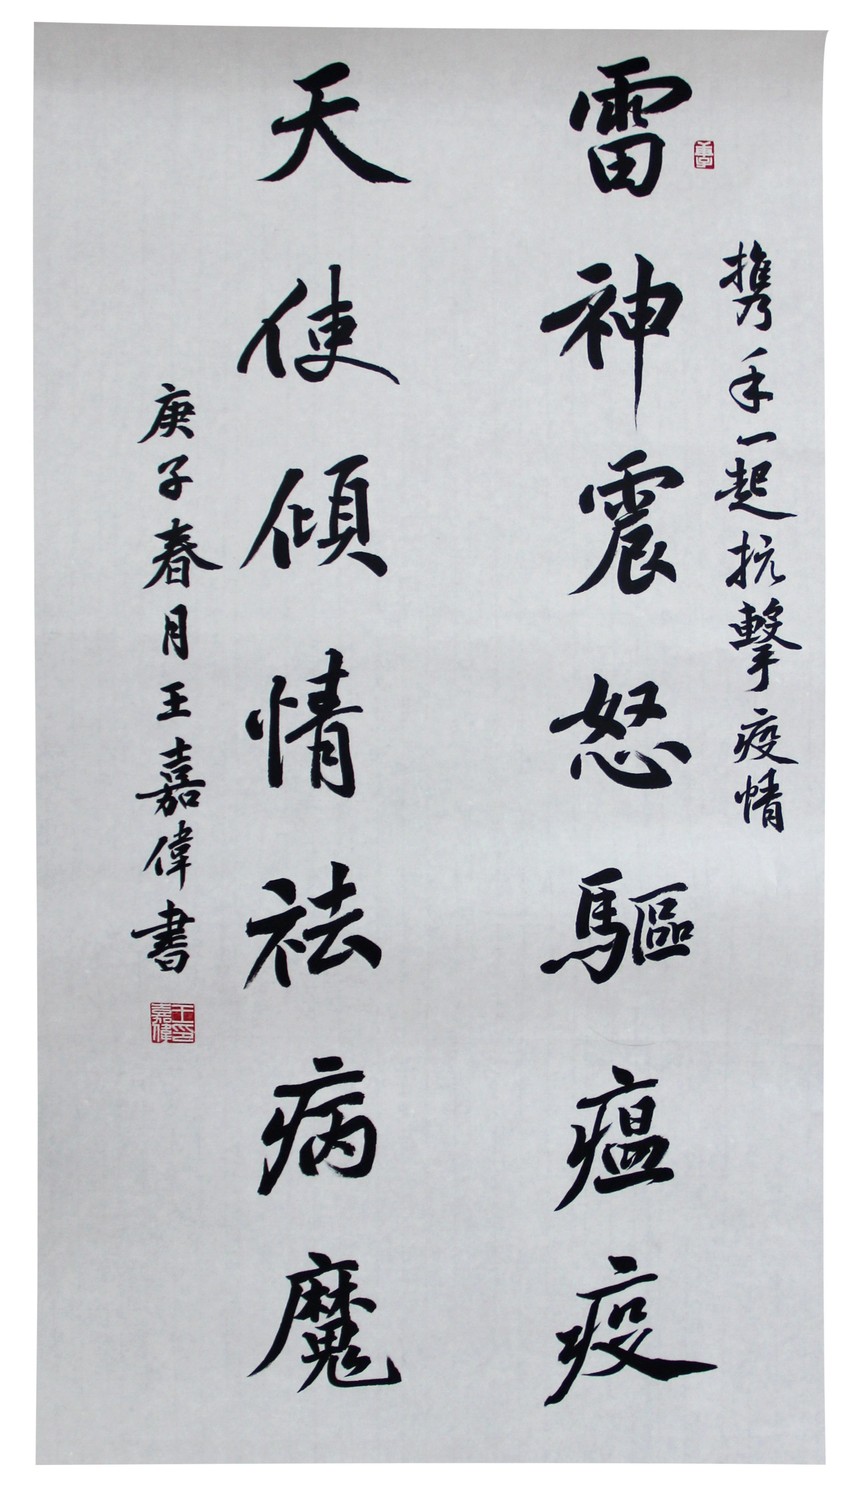 携手一起抗擊疫情
雷神震怒驅瘟疫
天使傾情祛病魔
庚子春月王嘉偉書
王嘉偉印